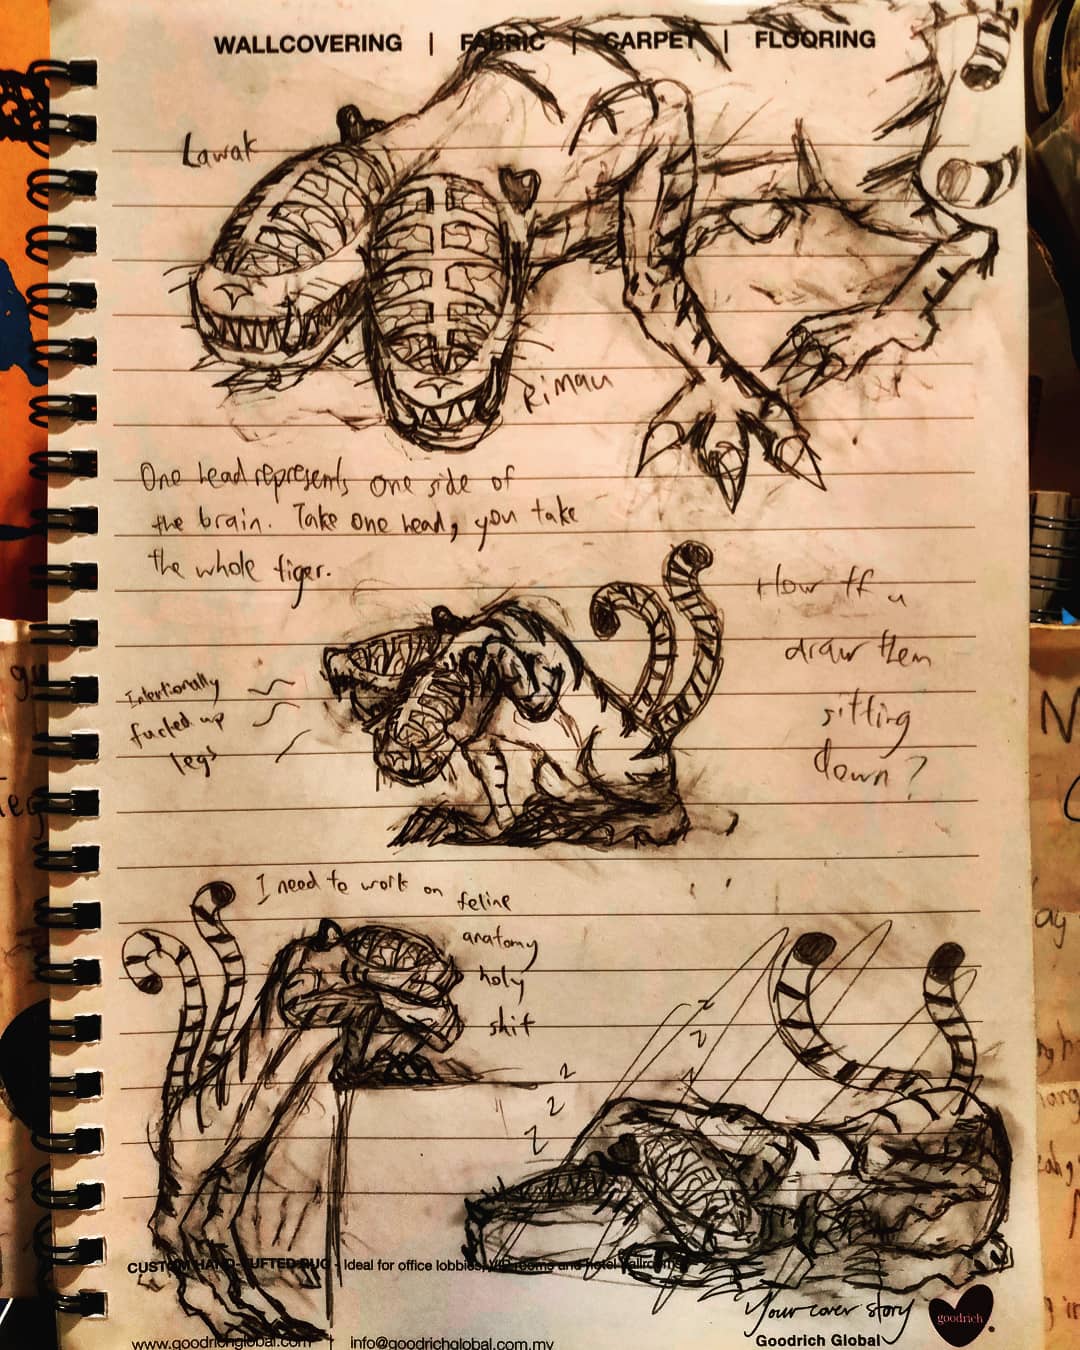 WALLCOVERING | FABRIC | CARPET | FLOORING
Lawak
Rimau
One head represents one side of
the brain. Take one head, you take
the whole tiger.
How tf u
draw them
sitting
down?
Intentionally
fucked up
legs
I need to work on feline
anatomy
holy
shit
z
z
z
z
z
z
CUSTOM HAND-TUFTED RUG - Ideal for office lobbies, VIP rooms and hotel ballrooms
Your cover story
goodrich
www.goodrichglobal.com | info@goodrichglobal.com.my
Goodrich Global